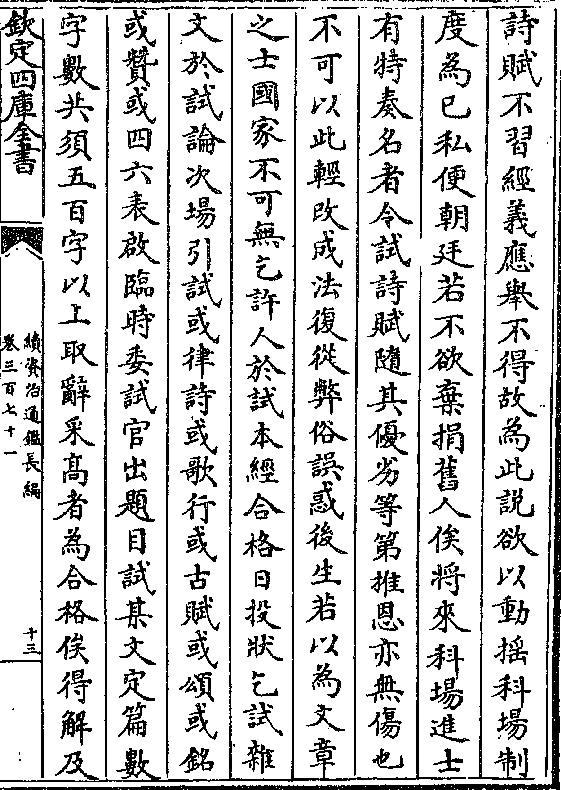 詩賦不習經義應舉不得故為此說欲以動揺科場制
度為已私便朝廷若不欲棄捐舊人俟將來科場進士
有特奏名者令試詩賦隨其優劣等第推恩亦無傷也
不可以此輕改成法復從弊俗誤惑後生若以為文章
之士國家不可無乞許人於試本經合格日投狀乞試雜
文於試論次場引試或律詩或歌行或古賦或頌或銘
或贊或四六表啟臨時委試官出題目試某文定篇數
字數共須五百字以上取辭采髙者為合格俟得解及
欽定四庫全書
續資治通鑑長編
卷三百七十一
十三